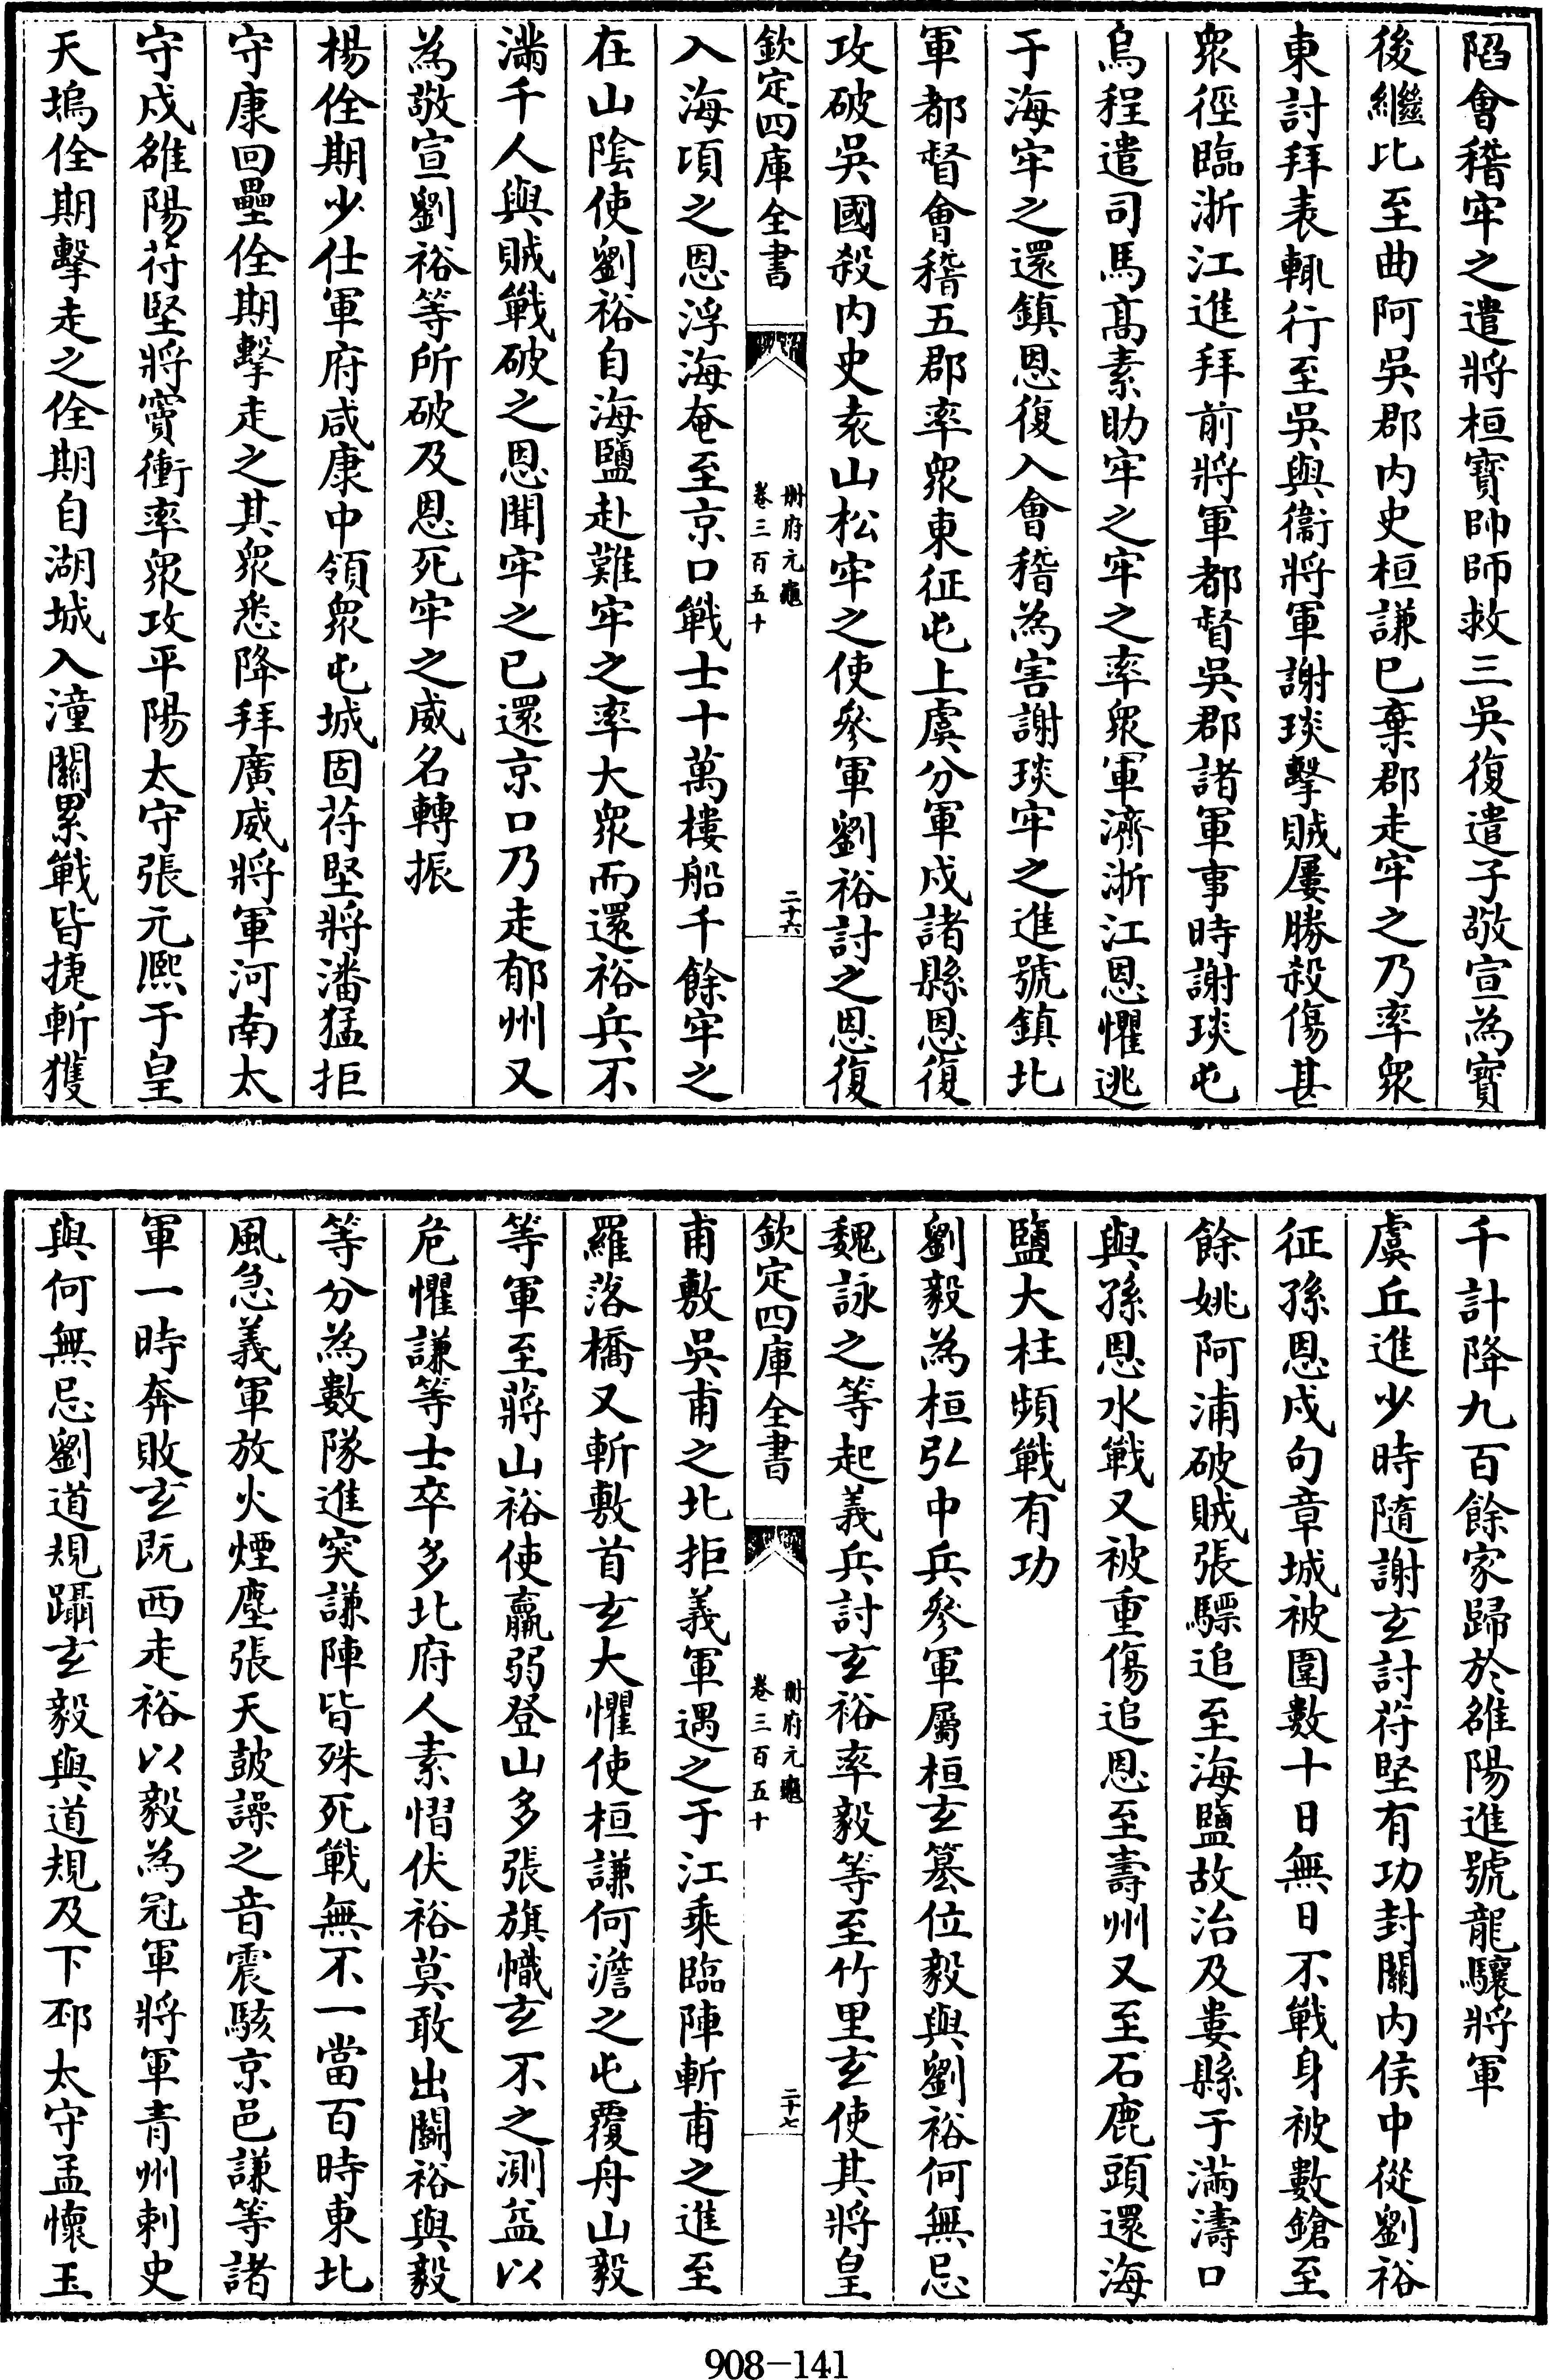 陷會稽牢之遣將桓寶帥師救三吳復遣子敬宣為寶
後繼比至曲阿吳郡内史桓謙已棄郡走牢之乃率衆
東討拜表輒行至吳與衞將軍謝琰擊賊屢勝殺傷甚
衆徑臨浙江進拜前將軍都督吳郡諸軍事時謝琰屯
烏程遣司馬髙素助牢之牢之率衆軍濟浙江恩懼逃
于海牢之還鎮恩復入會稽為害謝琰牢之進號鎮北
軍都督會稽五郡率衆東征屯上虞分軍戍諸縣恩復
攻破吳國殺内史袁山松牢之使參軍劉裕討之恩復
欽定四庫全書
冊府元龜
卷三百五十
二十六
入海項之恩浮海奄至京口戰士十萬樓船千餘牢之
在山隂使劉裕自海鹽赴難牢之率大衆而還裕兵不
滿千人與賊戰破之恩聞牢之已還京口乃走郁州又
為敬宣劉裕等所破及恩死牢之威名轉振
楊佺期少仕軍府咸康中領衆屯城固苻堅將潘猛拒
守康回壘佺期擊走之其衆悉降拜廣威將軍河南太
守戍雒陽苻堅將竇衝率衆攻平陽太守張元熈于皇
天塢佺期擊走之佺期自湖城入潼關累戰皆捷斬獲
千計降九百餘家歸於雒陽進號龍驤將軍
虞丘進少時隨謝玄討苻堅有功封關内侯中從劉裕
征孫恩戍句章城被圍數十日無日不戰身被數鎗至
餘姚阿浦破賊張驃追至海鹽故治及婁縣于滿濤口
與孫恩水戰又被重傷追恩至壽州又至石鹿頭還海
鹽大柱頻戰有功
劉毅為桓弘中兵參軍屬桓玄簒位毅與劉裕何無忌
魏詠之等起義兵討玄裕率毅等至竹里玄使其將皇
欽定四庫全書
冊府元龜
卷三百五十
二十七
甫敷吳甫之北拒義軍遇之于江乘臨陣斬甫之進至
羅落橋又斬敷首玄大懼使桓謙何澹之屯覆舟山毅
等軍至蔣山裕使羸弱登山多張旗幟玄不之測益以
危懼謙等士卒多北府人素慴伏裕莫敢出鬬裕與毅
等分為數隊進突謙陣皆殊死戰無不一當百時東北
風急義軍放火煙塵張天鼓譟之音震駭京邑謙等諸
軍一時奔敗玄旣西走裕以毅為冠軍將軍青州刺史
與何無忌劉道規躡玄毅與道規及下邳太守孟懷玉
908-141